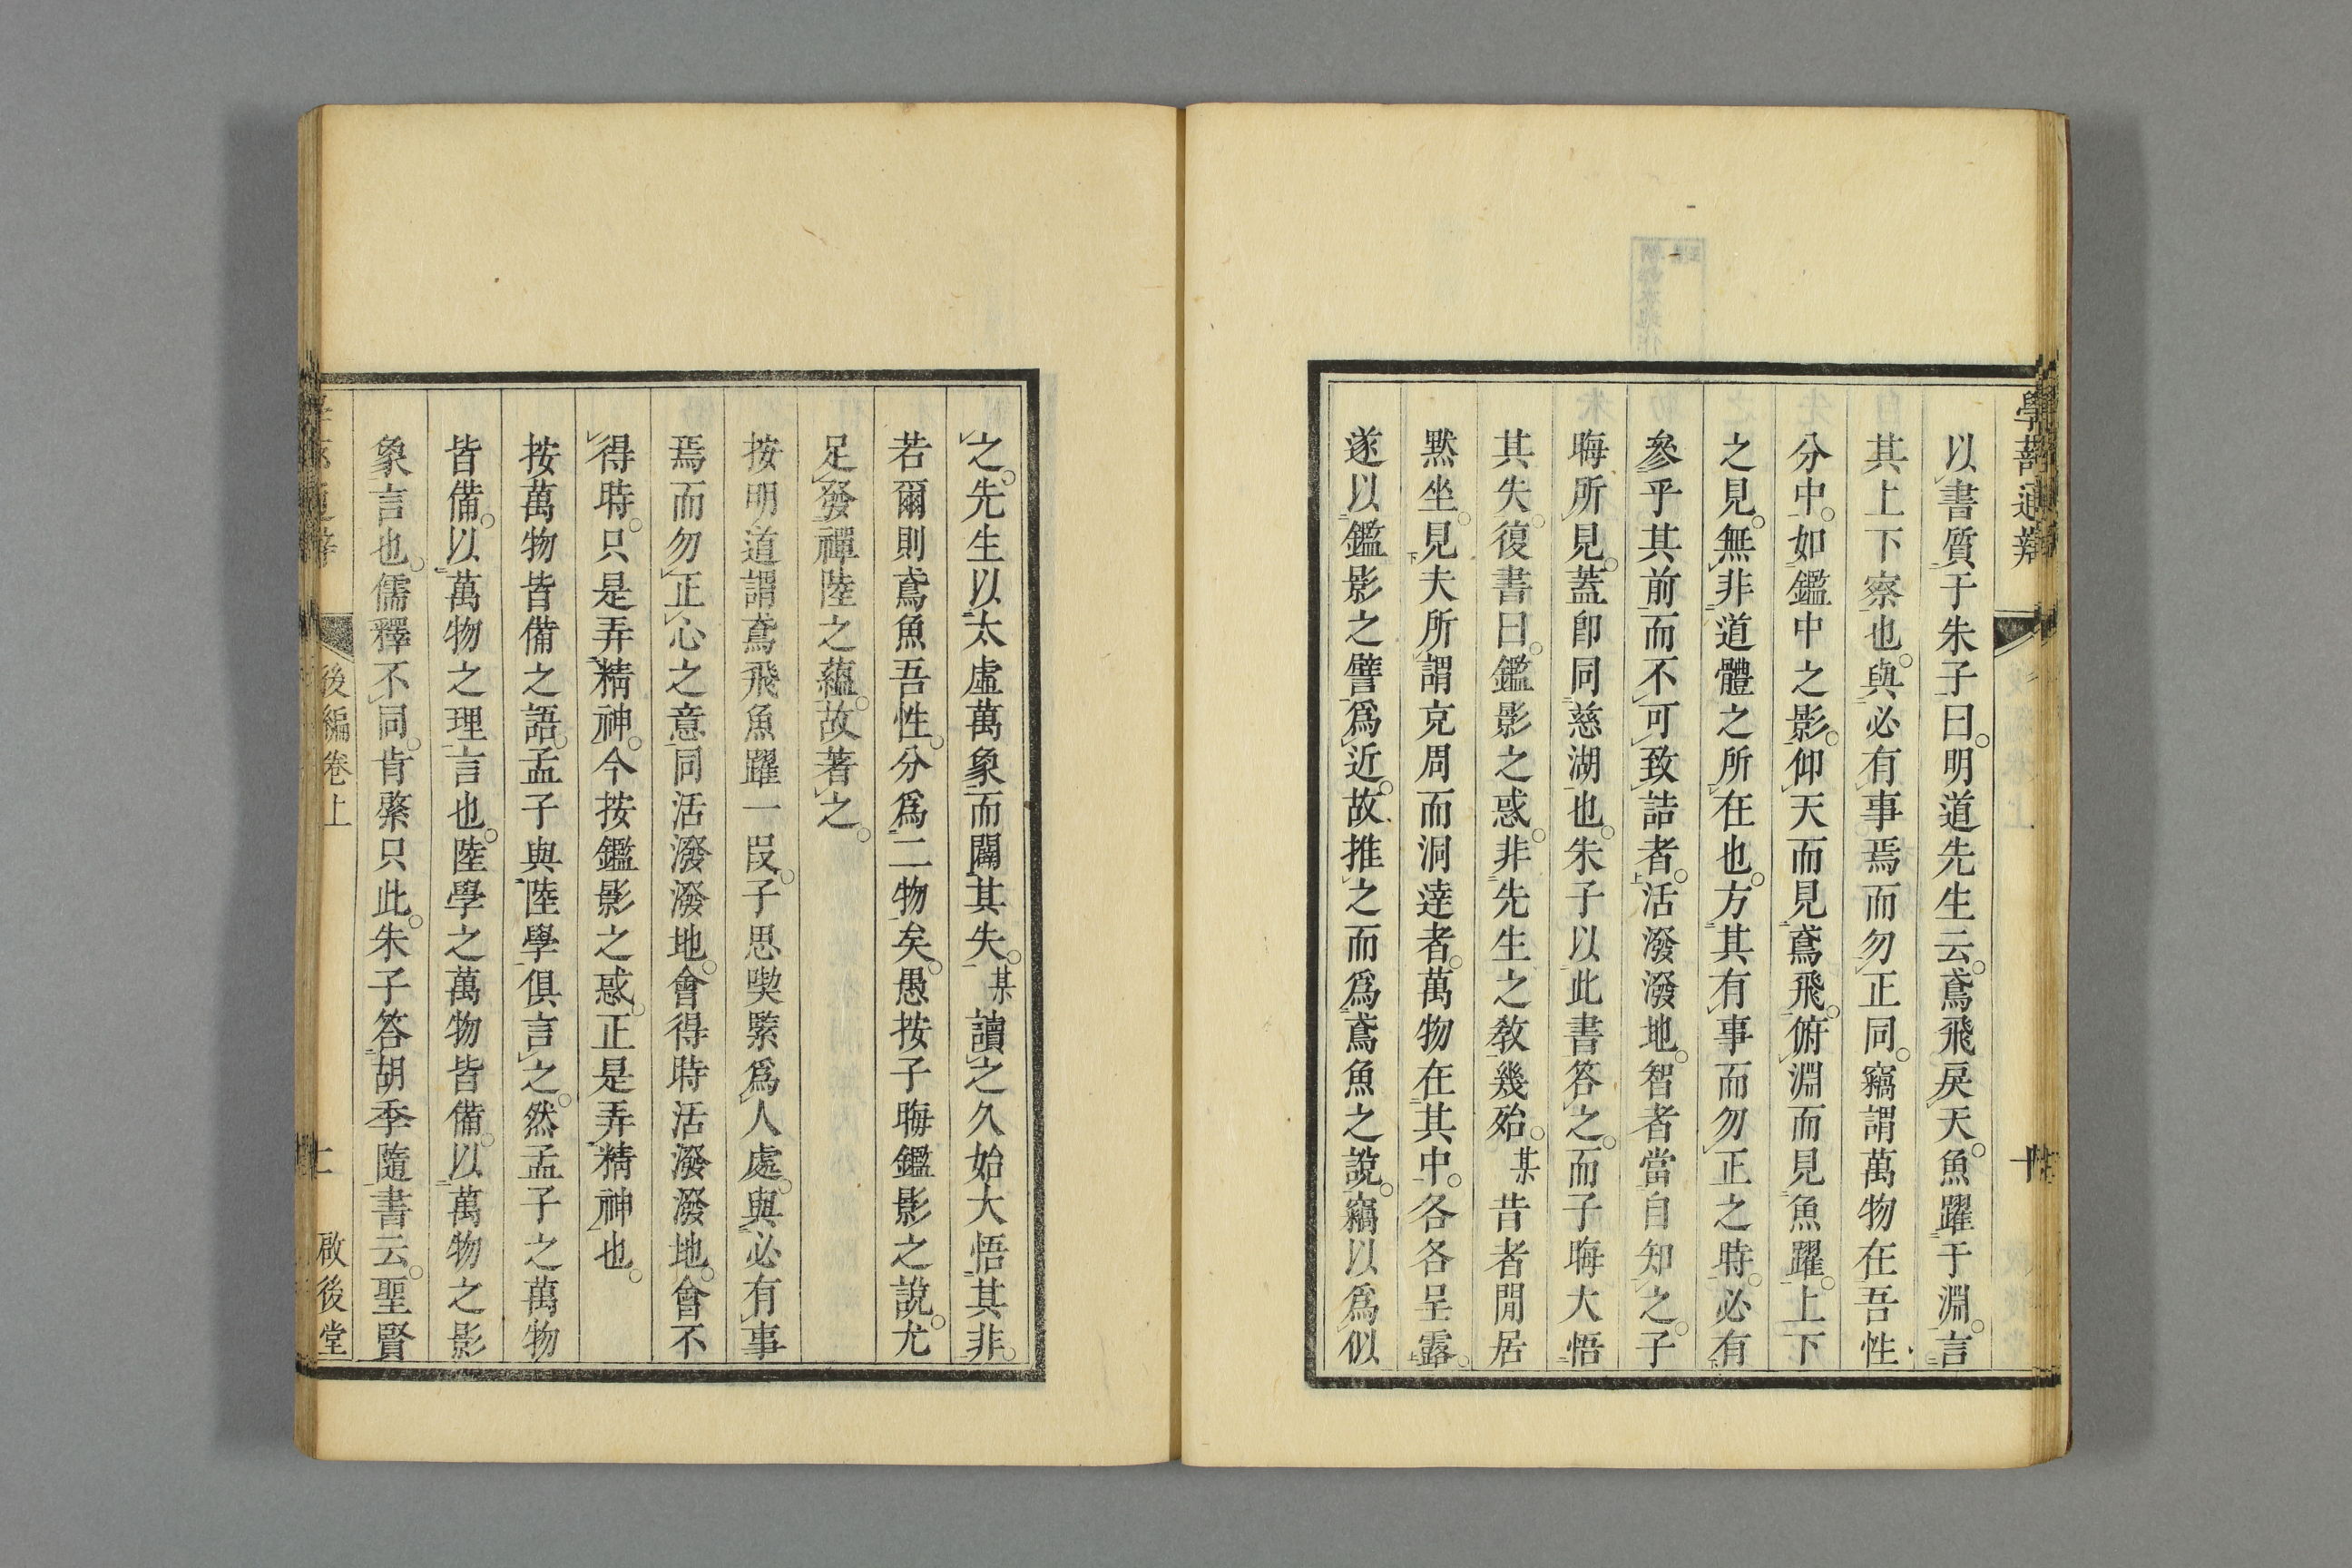 學蔀通辨
十
以書質于朱子曰明道先生云鳶飛戾天魚躍于淵言
其上下察也與必有事焉而勿正同竊謂萬物在吾性
分中如鑑中之影仰天而見鳶飛俯淵而見魚躍上下
之見無非道體之所在也方其有事而勿正之時必有
參乎其前而不可致詰者活潑潑地智者當自知之子
晦所見蓋卽同慈湖也朱子以此書答之而子晦大悟
其失復書曰鑑影之惑非先生之教幾殆某昔者閒居
默坐見夫所謂充周而洞達者萬物在其中各各呈露
遂以鑑影之譬爲近故推之而爲鳶魚之說竊以爲似
之先生以太虛萬象而闢其失某讀之久始大悟其非
若爾則鳶魚吾性分爲二物矣愚按子晦鑑影之說尤
足發禪陸之蘊故著之
按明道謂鳶飛魚躍一段子思喫緊爲人處與必有事
焉而勿正心之意同活潑潑地會得時活潑潑地會不
得時只是弄精神今按鑑影之惑正是弄精神也
按萬物皆備之語孟子與陸學俱言之然孟子之萬物
皆備以萬物之理言也陸學之萬物皆備以萬物之影
象言也儒釋不同肯綮只此朱子答胡季隨書云聖賢
後編卷上
啟後堂